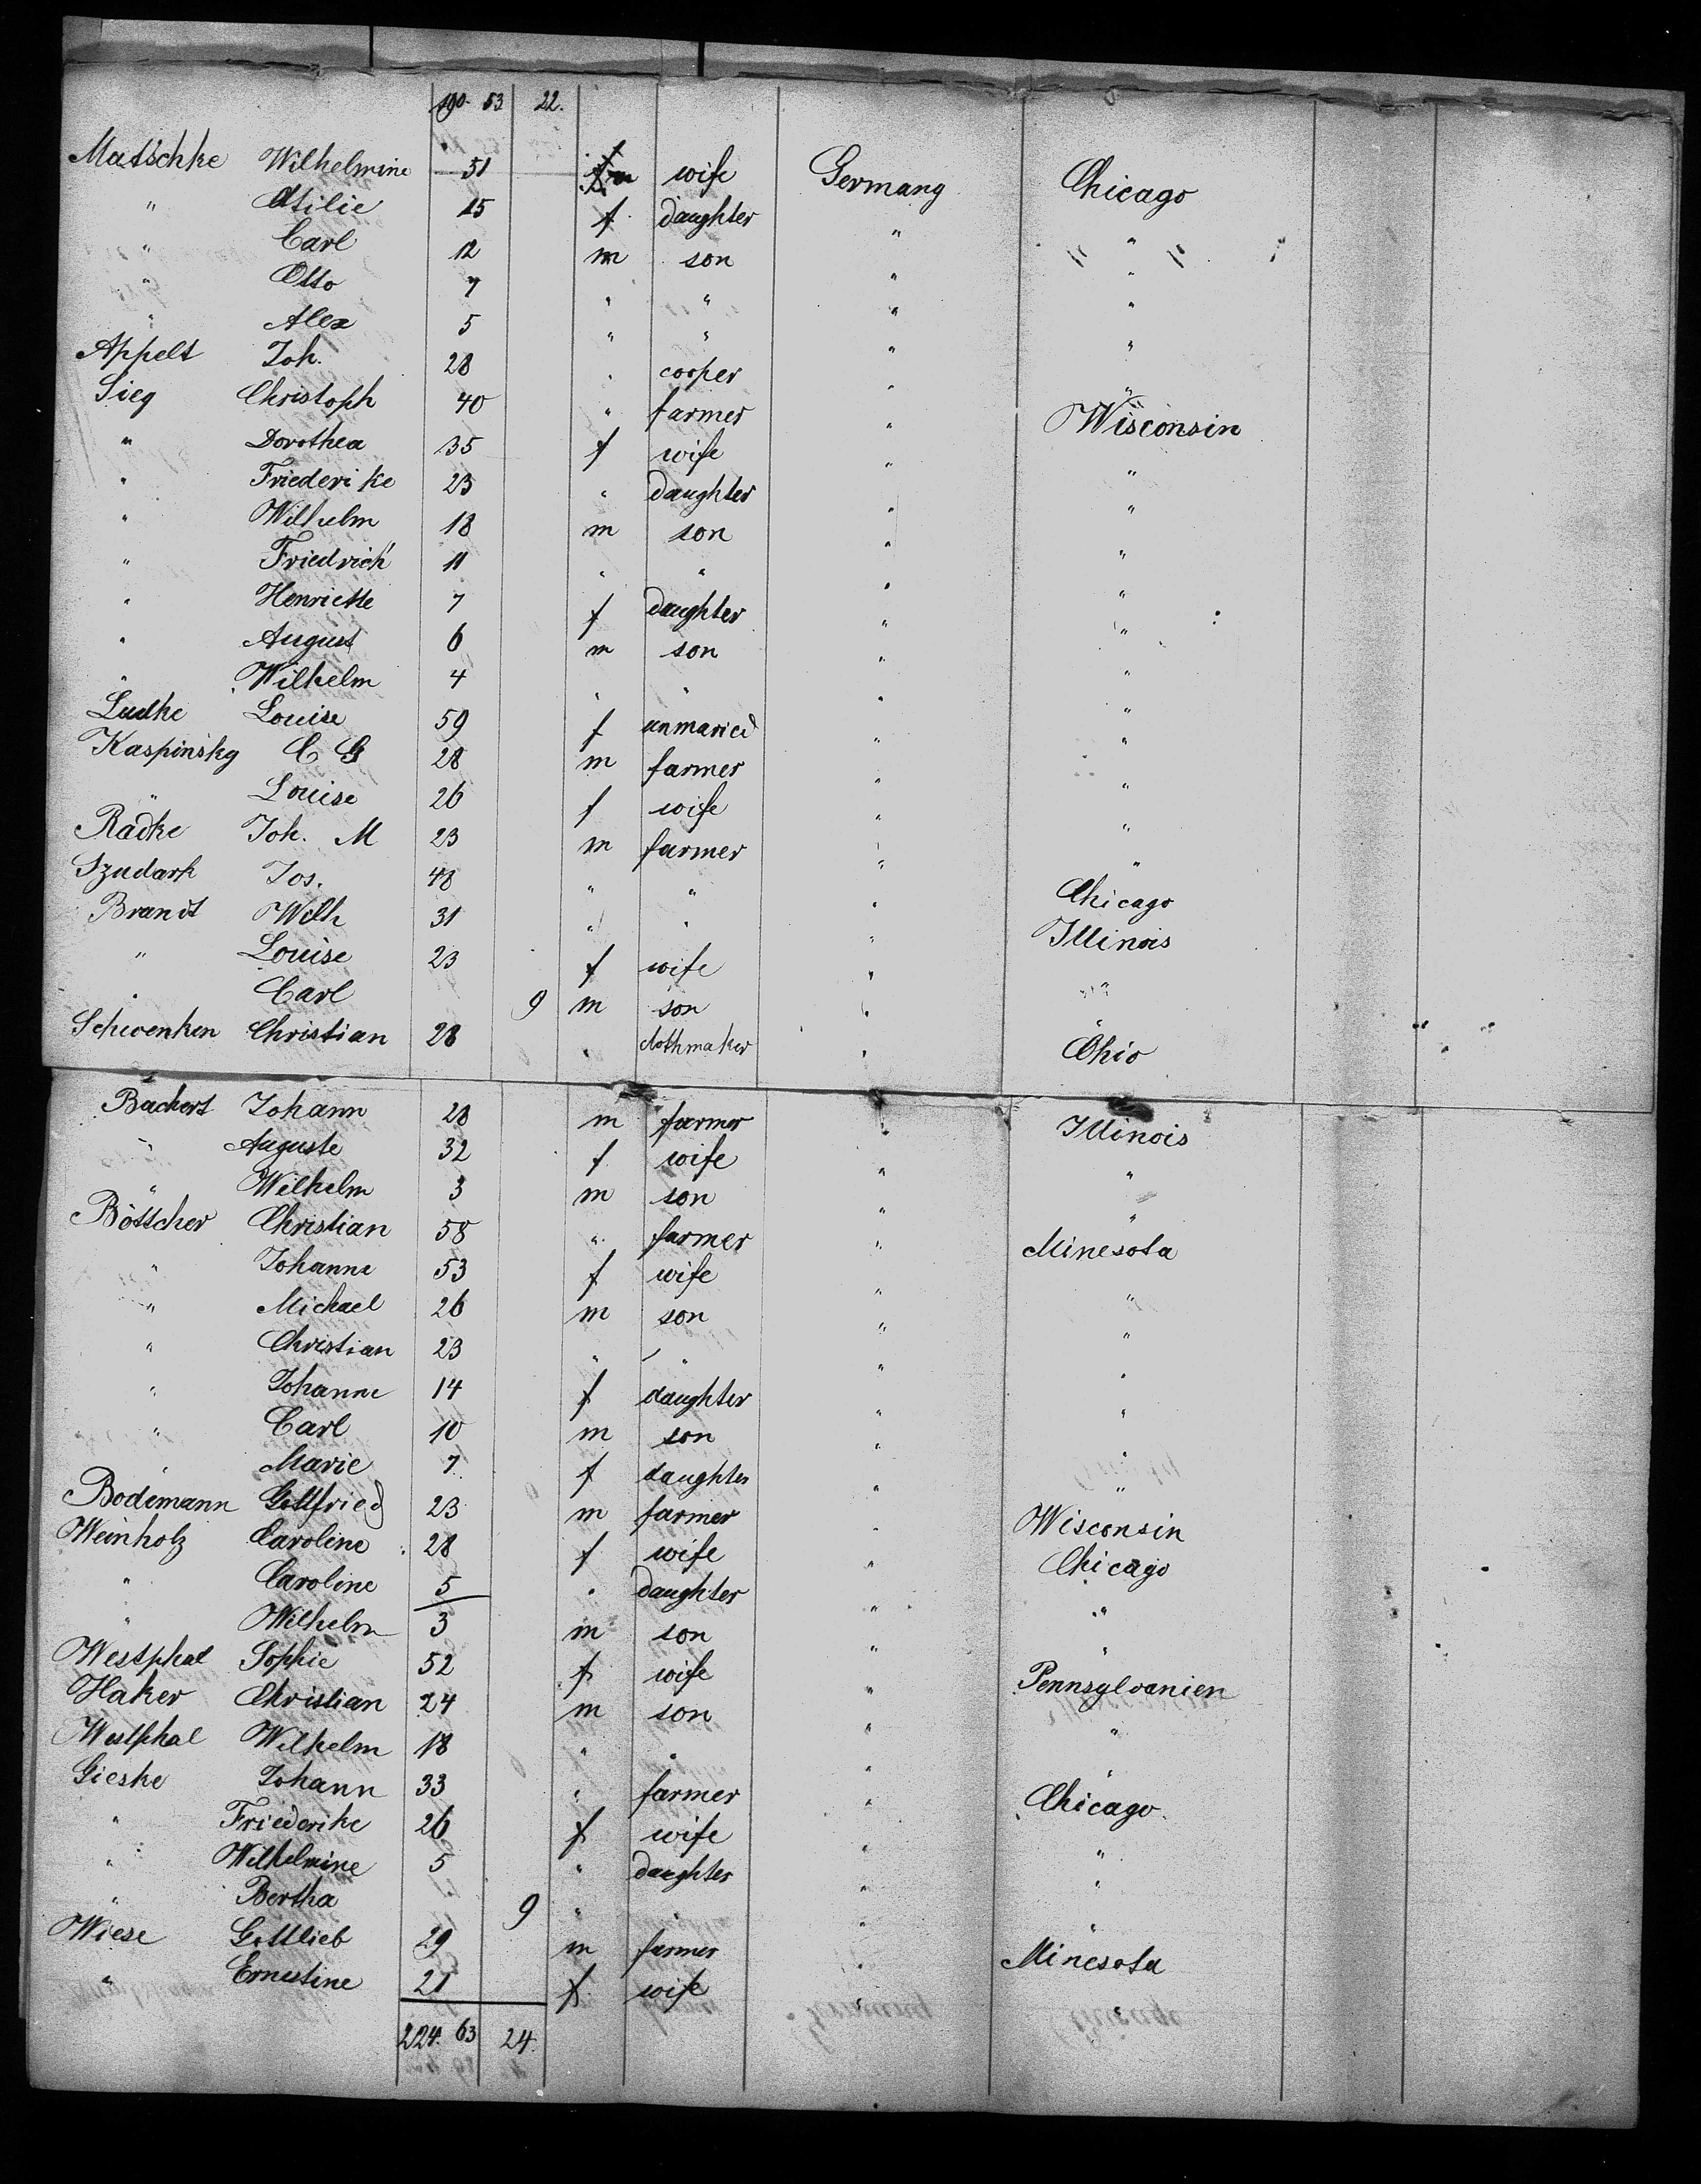 190. 53 22.
Matschke Wilhelmine 51 f wife Germany Chicago
" Otilie 15 f daughter " "
" Carl 12 m son " "
" Otto 7 " " " "
" Alex 5 " " " "
Appelt Joh. 28 " cooper " "
Sieg Christoph 40 " farmer " Wisconsin
" Dorothea 35 f wife " "
" Friederike 23 " daughter " "
" Wilhelm 18 m son " "
" Friedrich 11 " " " "
" Henriette 7 f daughter " "
" August 6 m son " "
" Wilhelm 4 " " " "
Ludke Louise 59 f unmaried " "
Kaspinsky C G 28 m farmer " "
" Louise 26 f wife " "
Radke Joh. M 23 m farmer " "
Szudark Jos. 48 " " " Chicago
Brandt Wilh 31 " " " Illinois
" Louise 23 f wife " "
" Carl 9 m son " "
Schwenken Christian 28 " clothmaker " Ohio
Bachert Johann 28 m farmer " Illinois
" Auguste 32 f wife " "
" Wilhelm 3 m son " "
Böttcher Christian 58 " farmer " Minesota
" Johanne 53 f wife " "
" Michael 26 m son " "
" Christian 23 " " " "
" Johanne 14 f daughter " "
" Carl 10 m son " "
" Marie 7 f daughter " "
Bodemann Gottfried 23 m farmer " Wisconsin
Weinholz Caroline 28 f wife " Chicago
" Caroline 5 " daughter " "
" Wilhelm 3 m son " "
Westphal Sophie 52 f wife " Pennsylvanien
Haker Christian 24 m son " "
Westphal Wilhelm 18 " " " "
Gieske Johann 33 " farmer " Chicago
" Friederike 26 f wife " "
" Wilhelmine 5 " daughter " "
" Bertha 9 " " " "
Wiese Gottlieb 29 m farmer " Minesota
" Ernestine 21 f wife " "
224. 63 24.